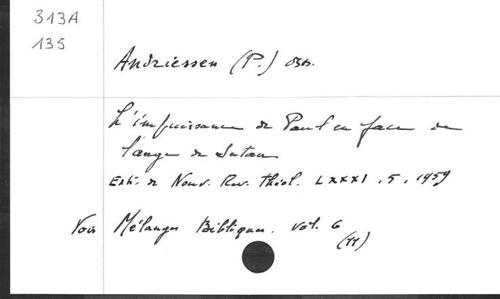 313A
135
Andriessen (P.) osb.
L'impuissance de Paul en face de
l'ange de Satan
Extr. de Nouv. Rev. Théol. LXXXI, 5, 1959
Voir Mélanges Bibliques. vol. 6
(11)